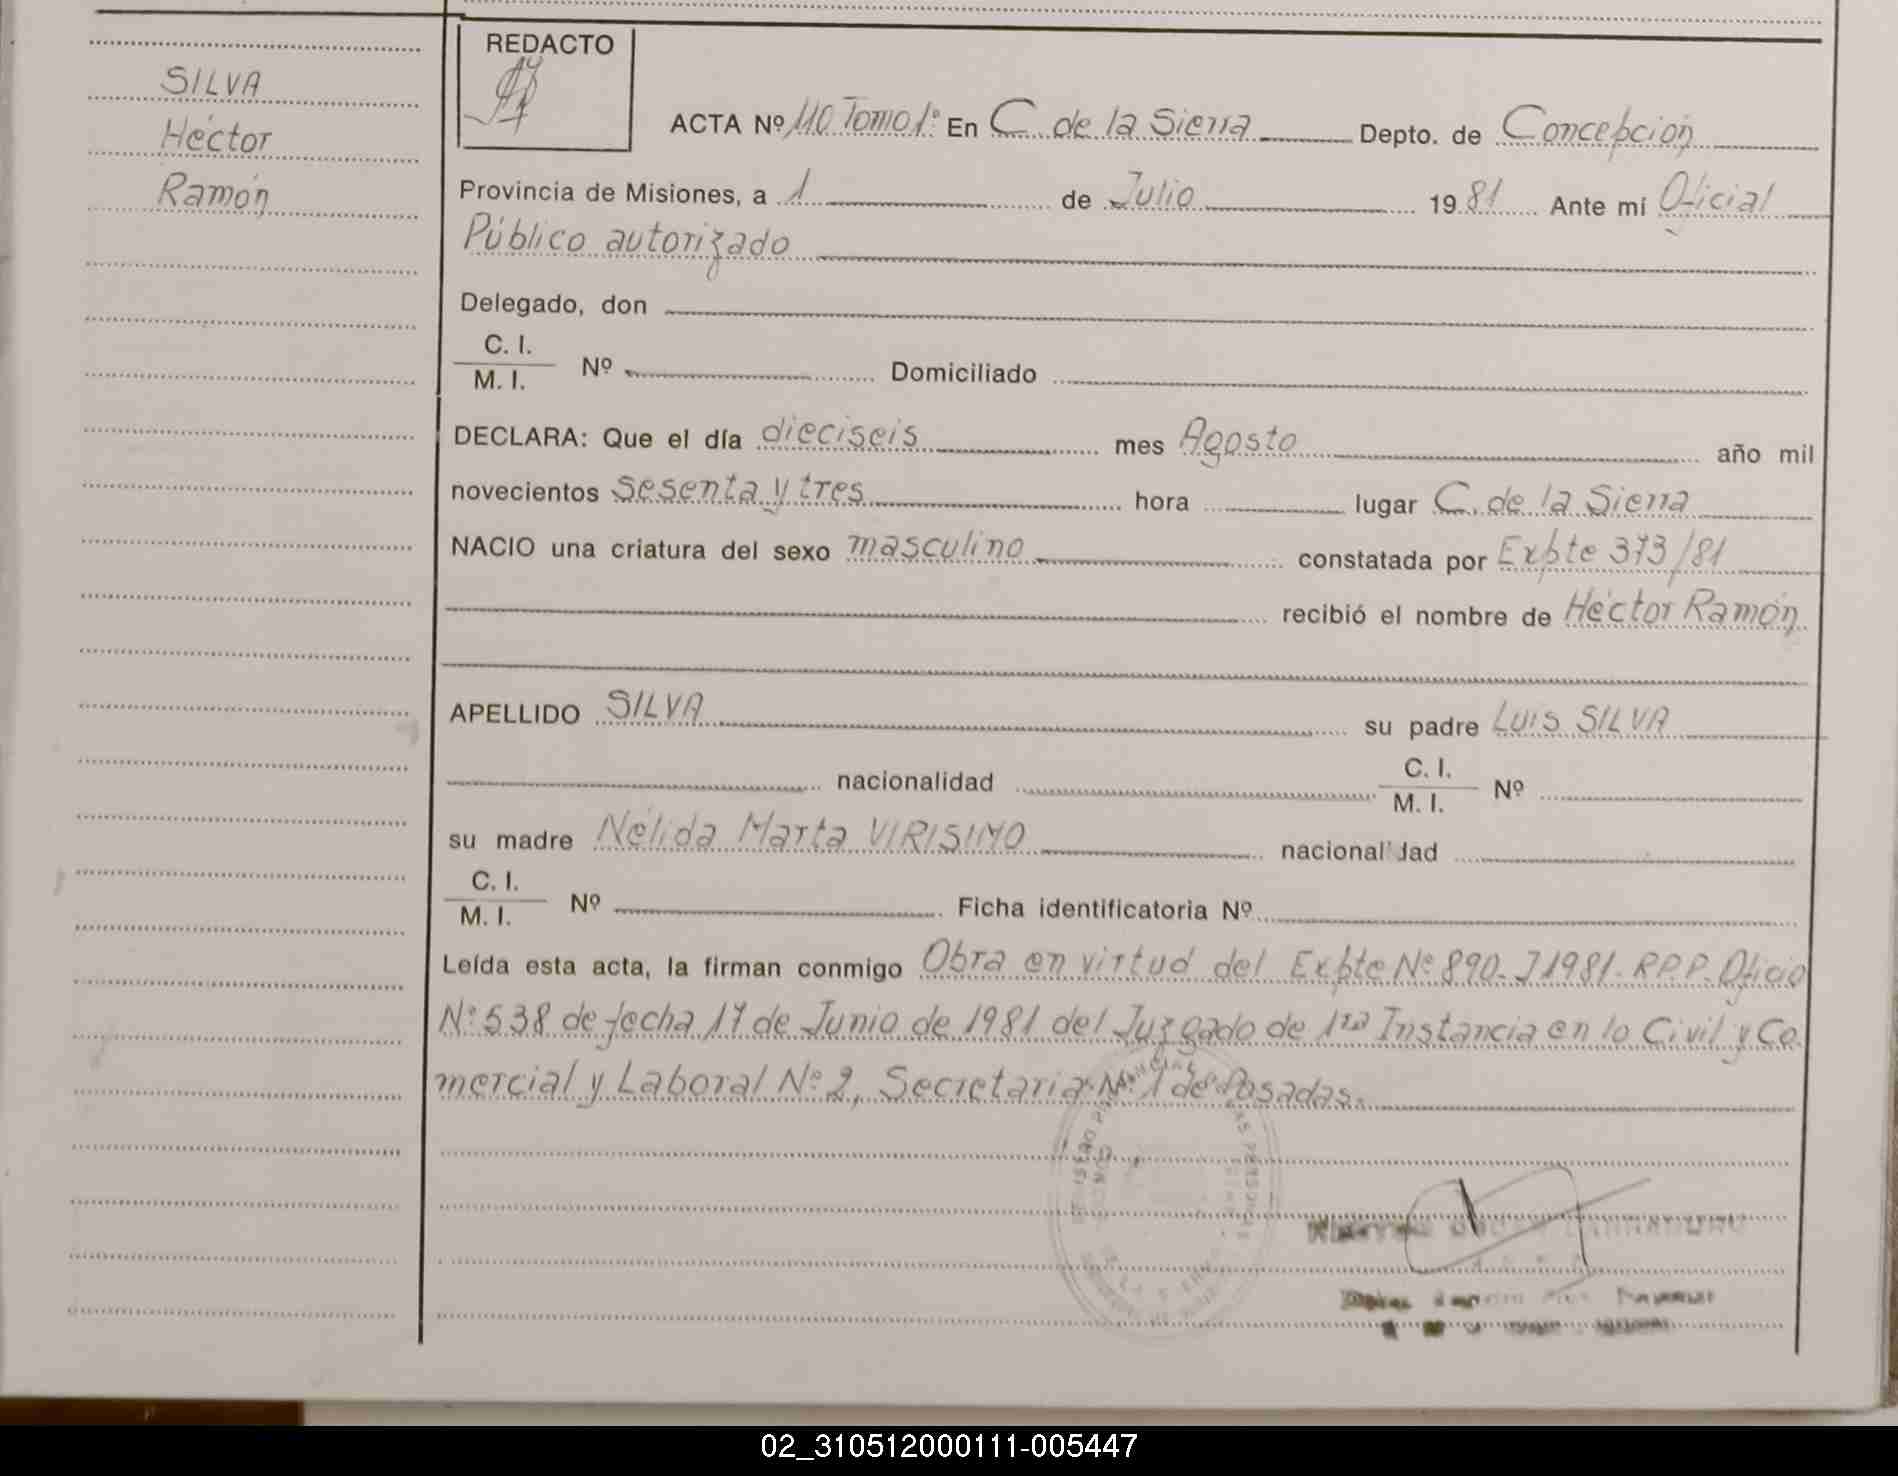 SILVA
Héctor
Ramón
REDACTO
ACTA Nº 110 Tomo 1º En C. de la Sierra Depto. de Concepción
Provincia de Misiones, a 1 de Julio 1981 Ante mí Oficial
Público autorizado
Delegado, don
C. I.
M. I. Nº Domiciliado
DECLARA: Que el día dieciseis mes Agosto año mil
novecientos sesenta y tres hora lugar C. de la Sierra
NACIO una criatura del sexo masculino constatada por Expte 373/81
recibió el nombre de Héctor Ramón
APELLIDO SILVA su padre Luis SILVA
nacionalidad C. I. M. I. Nº
su madre Nélida Marta VIRISIMO nacionalidad
C. I.
M. I. Nº Ficha identificatoria Nº
Leída esta acta, la firman conmigo Obra en virtud del Expte Nº 890-J1981-R.P.P. Oficio
Nº 538 de fecha 17 de Junio de 1981 del Juzgado de 1ra Instancia en lo Civil y Co-
mercial y Laboral Nº 2, Secretaria Nº 1 de Posadas.
02_310512000111-005447